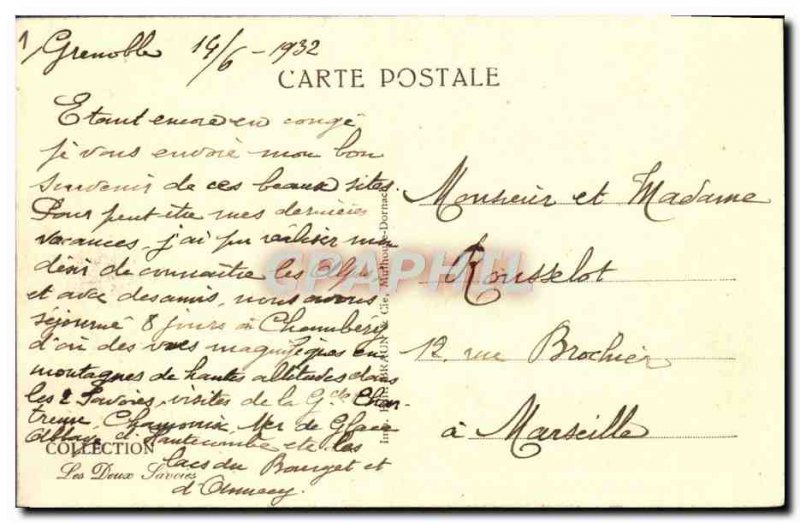 1
Grenoble 14/6 - 1932
CARTE POSTALE
Etant encore en congé
je vous envoie mon bon
souvenir de ces beaux sites.
Pour peut être mes dernières
vacances, j'ai pu réaliser mon
désir de connaître les Alpes
et avec des amis, nous avons
séjourné 8 jours à Chambéry
d'où des vues magnifiques en
montagnes de hautes altitudes dans
les 2 Savoies, visites de la Gde Char-
treuse, Chamonix, Mer de Glace
Abbaye d'Hautecombe etc les
lacs du Bourget et
d'Annecy
COLLECTION
Les Deux Savoies
BRAUN & Cie, Mulhouse-Dornach
Monsieur et Madame
Rousselot
12, rue Brochier
à Marseille
CPAPHIL